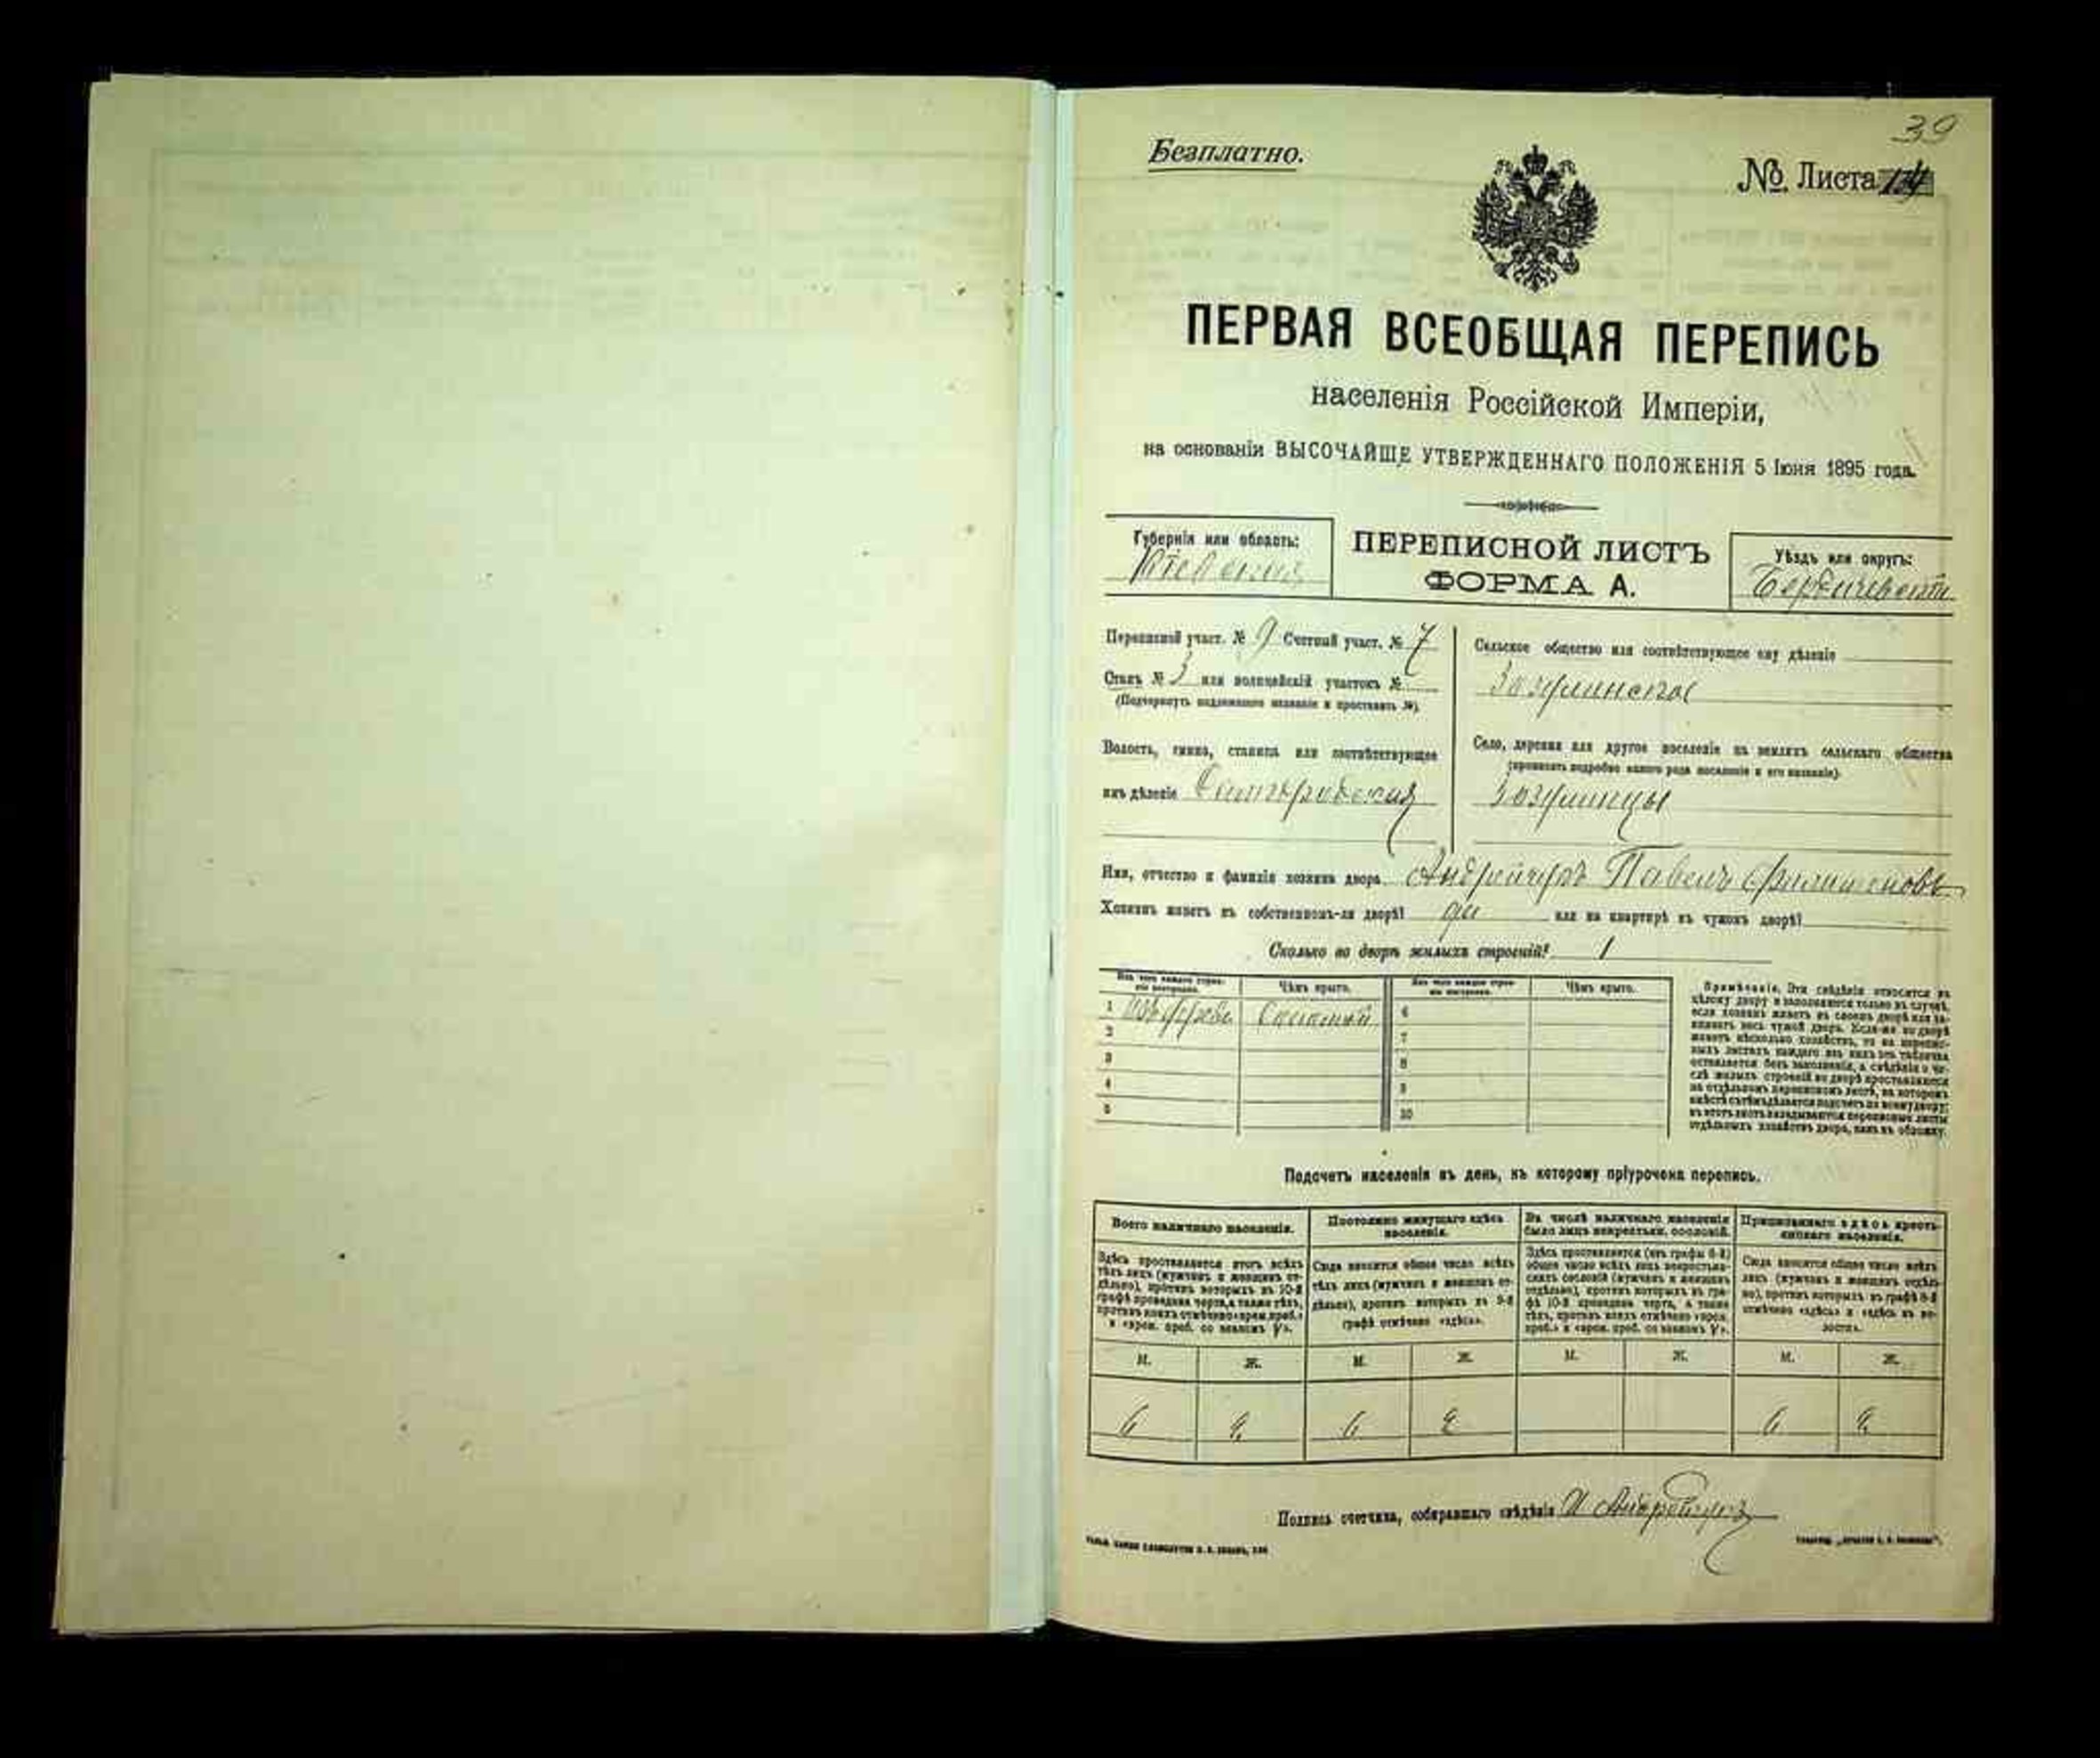 39
Безплатно.
№ Листа 14
ПЕРВАЯ ВСЕОБЩАЯ ПЕРЕПИСЬ
населенія Россійской Имперіи,
на основаніи ВЫСОЧАЙШЕ УТВЕРЖДЕННАГО ПОЛОЖЕНІЯ 5 Іюня 1895 года.
Губернія или область:
Кіевская
ПЕРЕПИСНОЙ ЛИСТЪ
ФОРМА А.
Уѣздъ или округъ:
Бердичевскій
Переписной участ. № 9 Счетный участ. № 7
Станъ № 3 или полицейскій участокъ №
(Подчеркнуть надлежащее названіе и проставить №).
Волость, гмина, станица или соотвѣтствующее
имъ дѣленіе Самгородская
Сельское общество или соотвѣтствующее ему дѣленіе
Зозулинское
Село, деревня или другое поселеніе на земляхъ сельскаго общества
(прописать подробно какого рода поселеніе и его названіе).
Зозулинцы
Имя, отчество и фамилія хозяина двора Павелъ Филимоновъ
Хозяинъ живетъ въ собственномъ-ли дворѣ? да или на квартирѣ въ чужомъ дворѣ?
Сколько во дворѣ жилыхъ строеній? 1
Изъ чего каждое строеніе построено.
Чѣмъ крыто.
Изъ чего каждое строеніе построено.
Чѣмъ крыто.
1 Изъ дерева Соломой 6
2 7
3 8
4 9
5 10
Примѣчаніе. Эти свѣдѣнія относятся къ
цѣлому двору и заполняются только въ случаѣ,
если хозяинъ живетъ въ своемъ дворѣ или занимаетъ
весь чужой дворъ. Если-же во дворѣ
живетъ нѣсколько хозяйствъ, то на переписныхъ
листахъ каждаго изъ нихъ эта табличка
оставляется безъ заполненія, а свѣдѣнія о числѣ
жилыхъ строеній во дворѣ проставляются
на отдѣльномъ переписномъ листѣ, на которомъ
вмѣстѣ съ тѣмъ дѣлается подсчетъ по всему двору;
въ этотъ листъ вкладываются переписные листы
отдѣльныхъ хозяйствъ двора, какъ въ обложку.
Подсчетъ населенія въ день, къ которому пріурочена перепись.
Всего наличнаго населенія.
Постоянно живущаго здѣсь населенія.
Въ числѣ наличнаго населенія было лицъ некрестьян. сословій.
Приписаннаго здѣсь крестьянскаго населенія.
Здѣсь проставляется итогъ всѣхъ
тѣхъ лицъ (мужчинъ и женщинъ отдѣльно),
противъ которыхъ въ 10-й
графѣ проведена черта, а также тѣхъ,
противъ коихъ отмѣчено «врем. преб.»
и «врем. преб. со знакомъ V».
Сюда вносится общее число всѣхъ
тѣхъ лицъ (мужчинъ и женщинъ отдѣльно),
противъ которыхъ въ 9-й
графѣ отмѣчено «здѣсь».
Здѣсь проставляется (изъ графы 6-й)
общее число всѣхъ лицъ некрестьянскихъ
сословій (мужчинъ и женщинъ
отдѣльно), противъ которыхъ въ графѣ
10-й проведена черта, а также
тѣхъ, противъ коихъ отмѣчено «врем.
преб.» и «врем. преб. со знакомъ V».
Сюда вносится общее число всѣхъ
лицъ (мужчинъ и женщинъ отдѣльно),
противъ которыхъ въ графѣ 8-й
отмѣчено «здѣсь» и «здѣсь въ волости».
М. Ж. М. Ж. М. Ж. М. Ж.
Подпись счетчика, собиравшаго свѣдѣнія